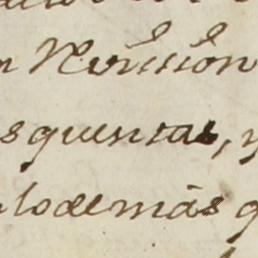 n Revición
s quentas, y
lo demás q